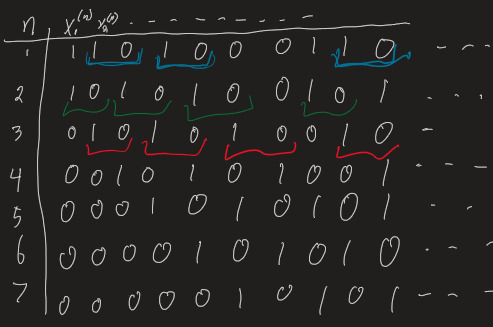 n x₁⁽ⁿ⁾ x₂⁽ⁿ⁾ - - - - - - - -
1 1 1 0 1 0 0 0 1 1 0 - - -
2 1 0 1 0 1 0 0 1 0 1 - - -
3 0 1 0 1 0 1 0 0 1 0 -
4 0 0 1 0 1 0 1 0 0 1 - - -
5 0 0 0 1 0 1 0 1 0 1 - -
6 0 0 0 0 1 0 1 0 1 0 - - -
7 0 0 0 0 0 1 0 1 0 1 - - -